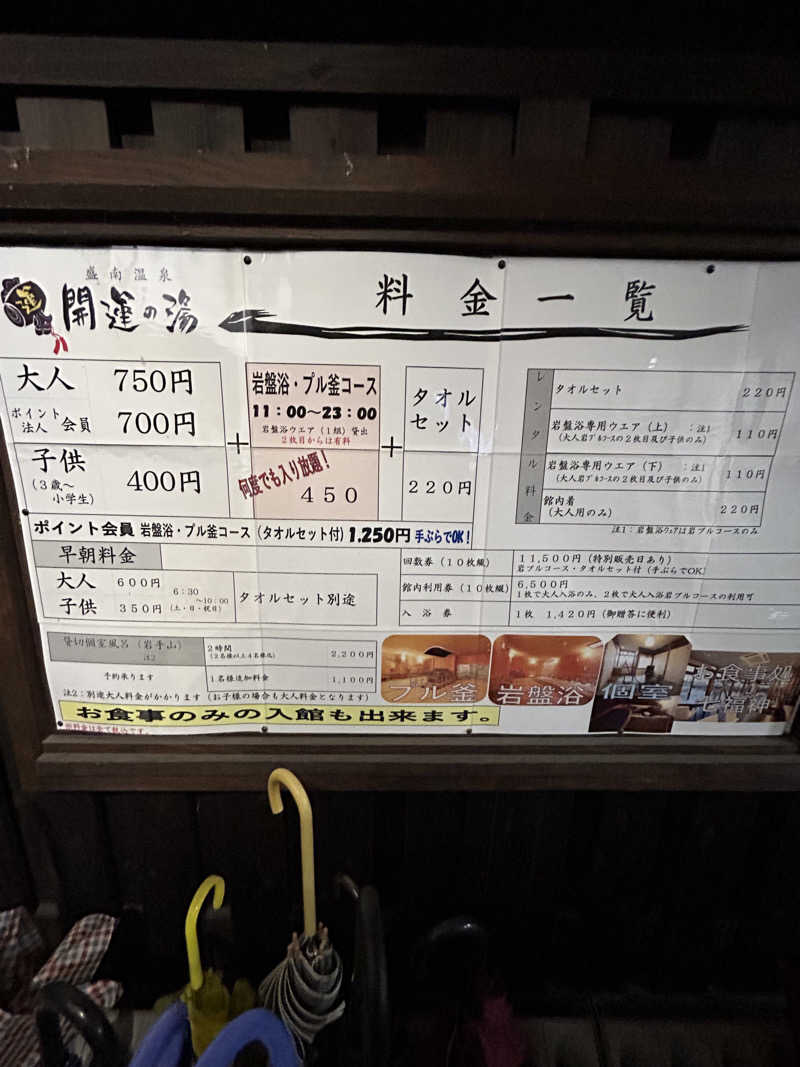 盛南温泉
開運の湯
料金一覧
大人 750円
ポイント
法人 会員 700円
子供
(3歳～
小学生) 400円
+
岩盤浴・プル釜コース
11：00～23：00
岩盤浴ウエア（1組）貸出
2枚目からは有料
何度でも入り放題！
450
+
タオル
セット
220円
レンタル料金
タオルセット 220円
岩盤浴専用ウエア（上） ：注1
（大人岩ﾌﾟﾙｺｰｽの2枚目及び子供のみ） 110円
岩盤浴専用ウエア（下） ：注1
（大人岩ﾌﾟﾙｺｰｽの2枚目及び子供のみ） 110円
館内着
（大人用のみ） 220円
注1：岩盤浴ｳｪｱは岩プルコースのみ
ポイント会員 岩盤浴・プル釜コース（タオルセット付）1,250円 手ぶらでOK！
早朝料金
大人 600円
子供 350円
6：30
～10：00
（土・日・祝日）
タオルセット別途
回数券（10枚綴） 11,500円（特別販売日あり）
岩プルコース・タオルセット付（手ぶらでOK）
館内利用券（10枚綴） 6,500円
1枚で大人入浴のみ、2枚で大人入浴岩プルコースの利用可
入浴券 1枚 1,420円（御贈答に便利）
貸切個室風呂（岩手山）
注2
予約承ります
2時間
（2名様以上4名様迄） 2,200円
1名様追加料金 1,100円
注2：別途大人料金がかかります（お子様の場合も大人料金となります）
お食事のみの入館も出来ます。
※料金は全て税込です。
プル釜
岩盤浴
個室
お食事処
七福神